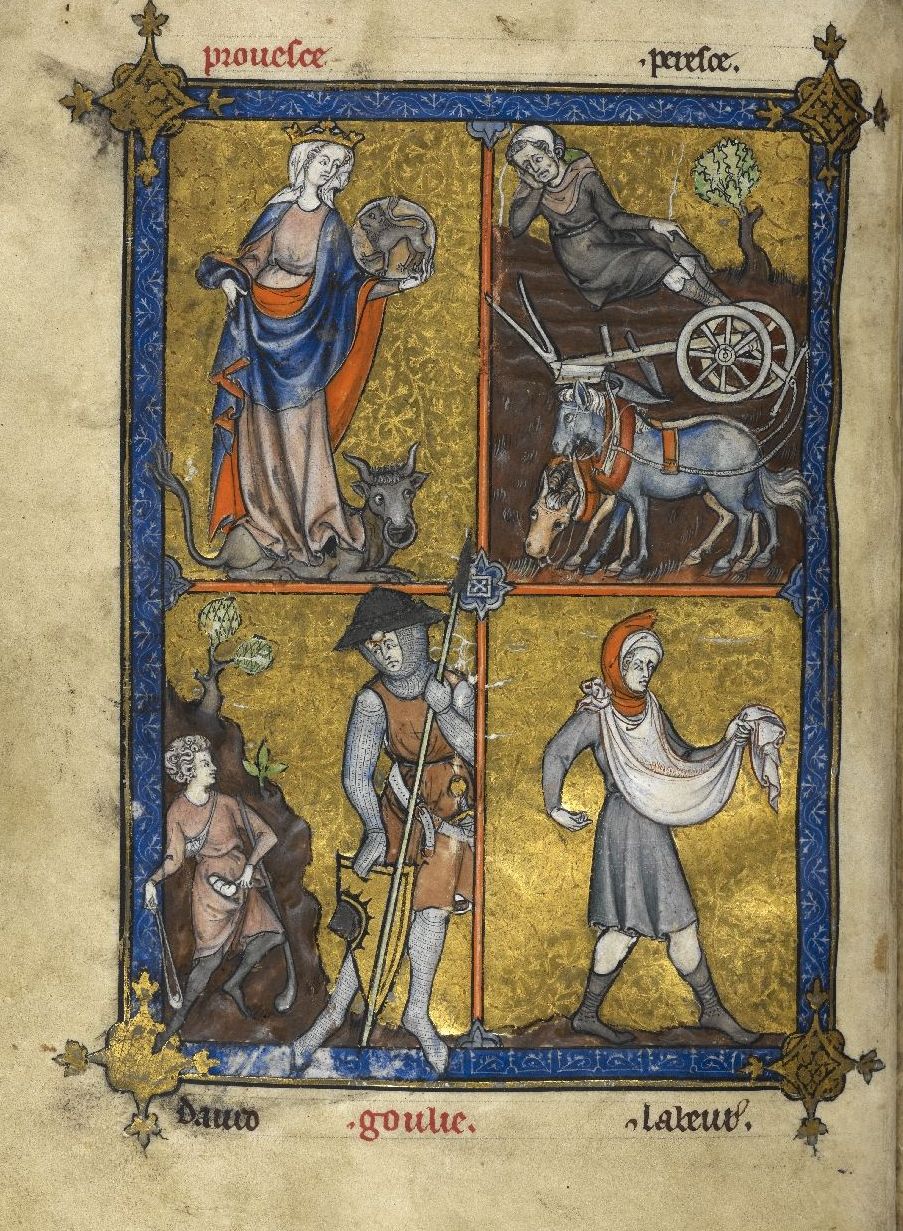 prouesce
.peresce.
dauid
.goulie.
.labeur.